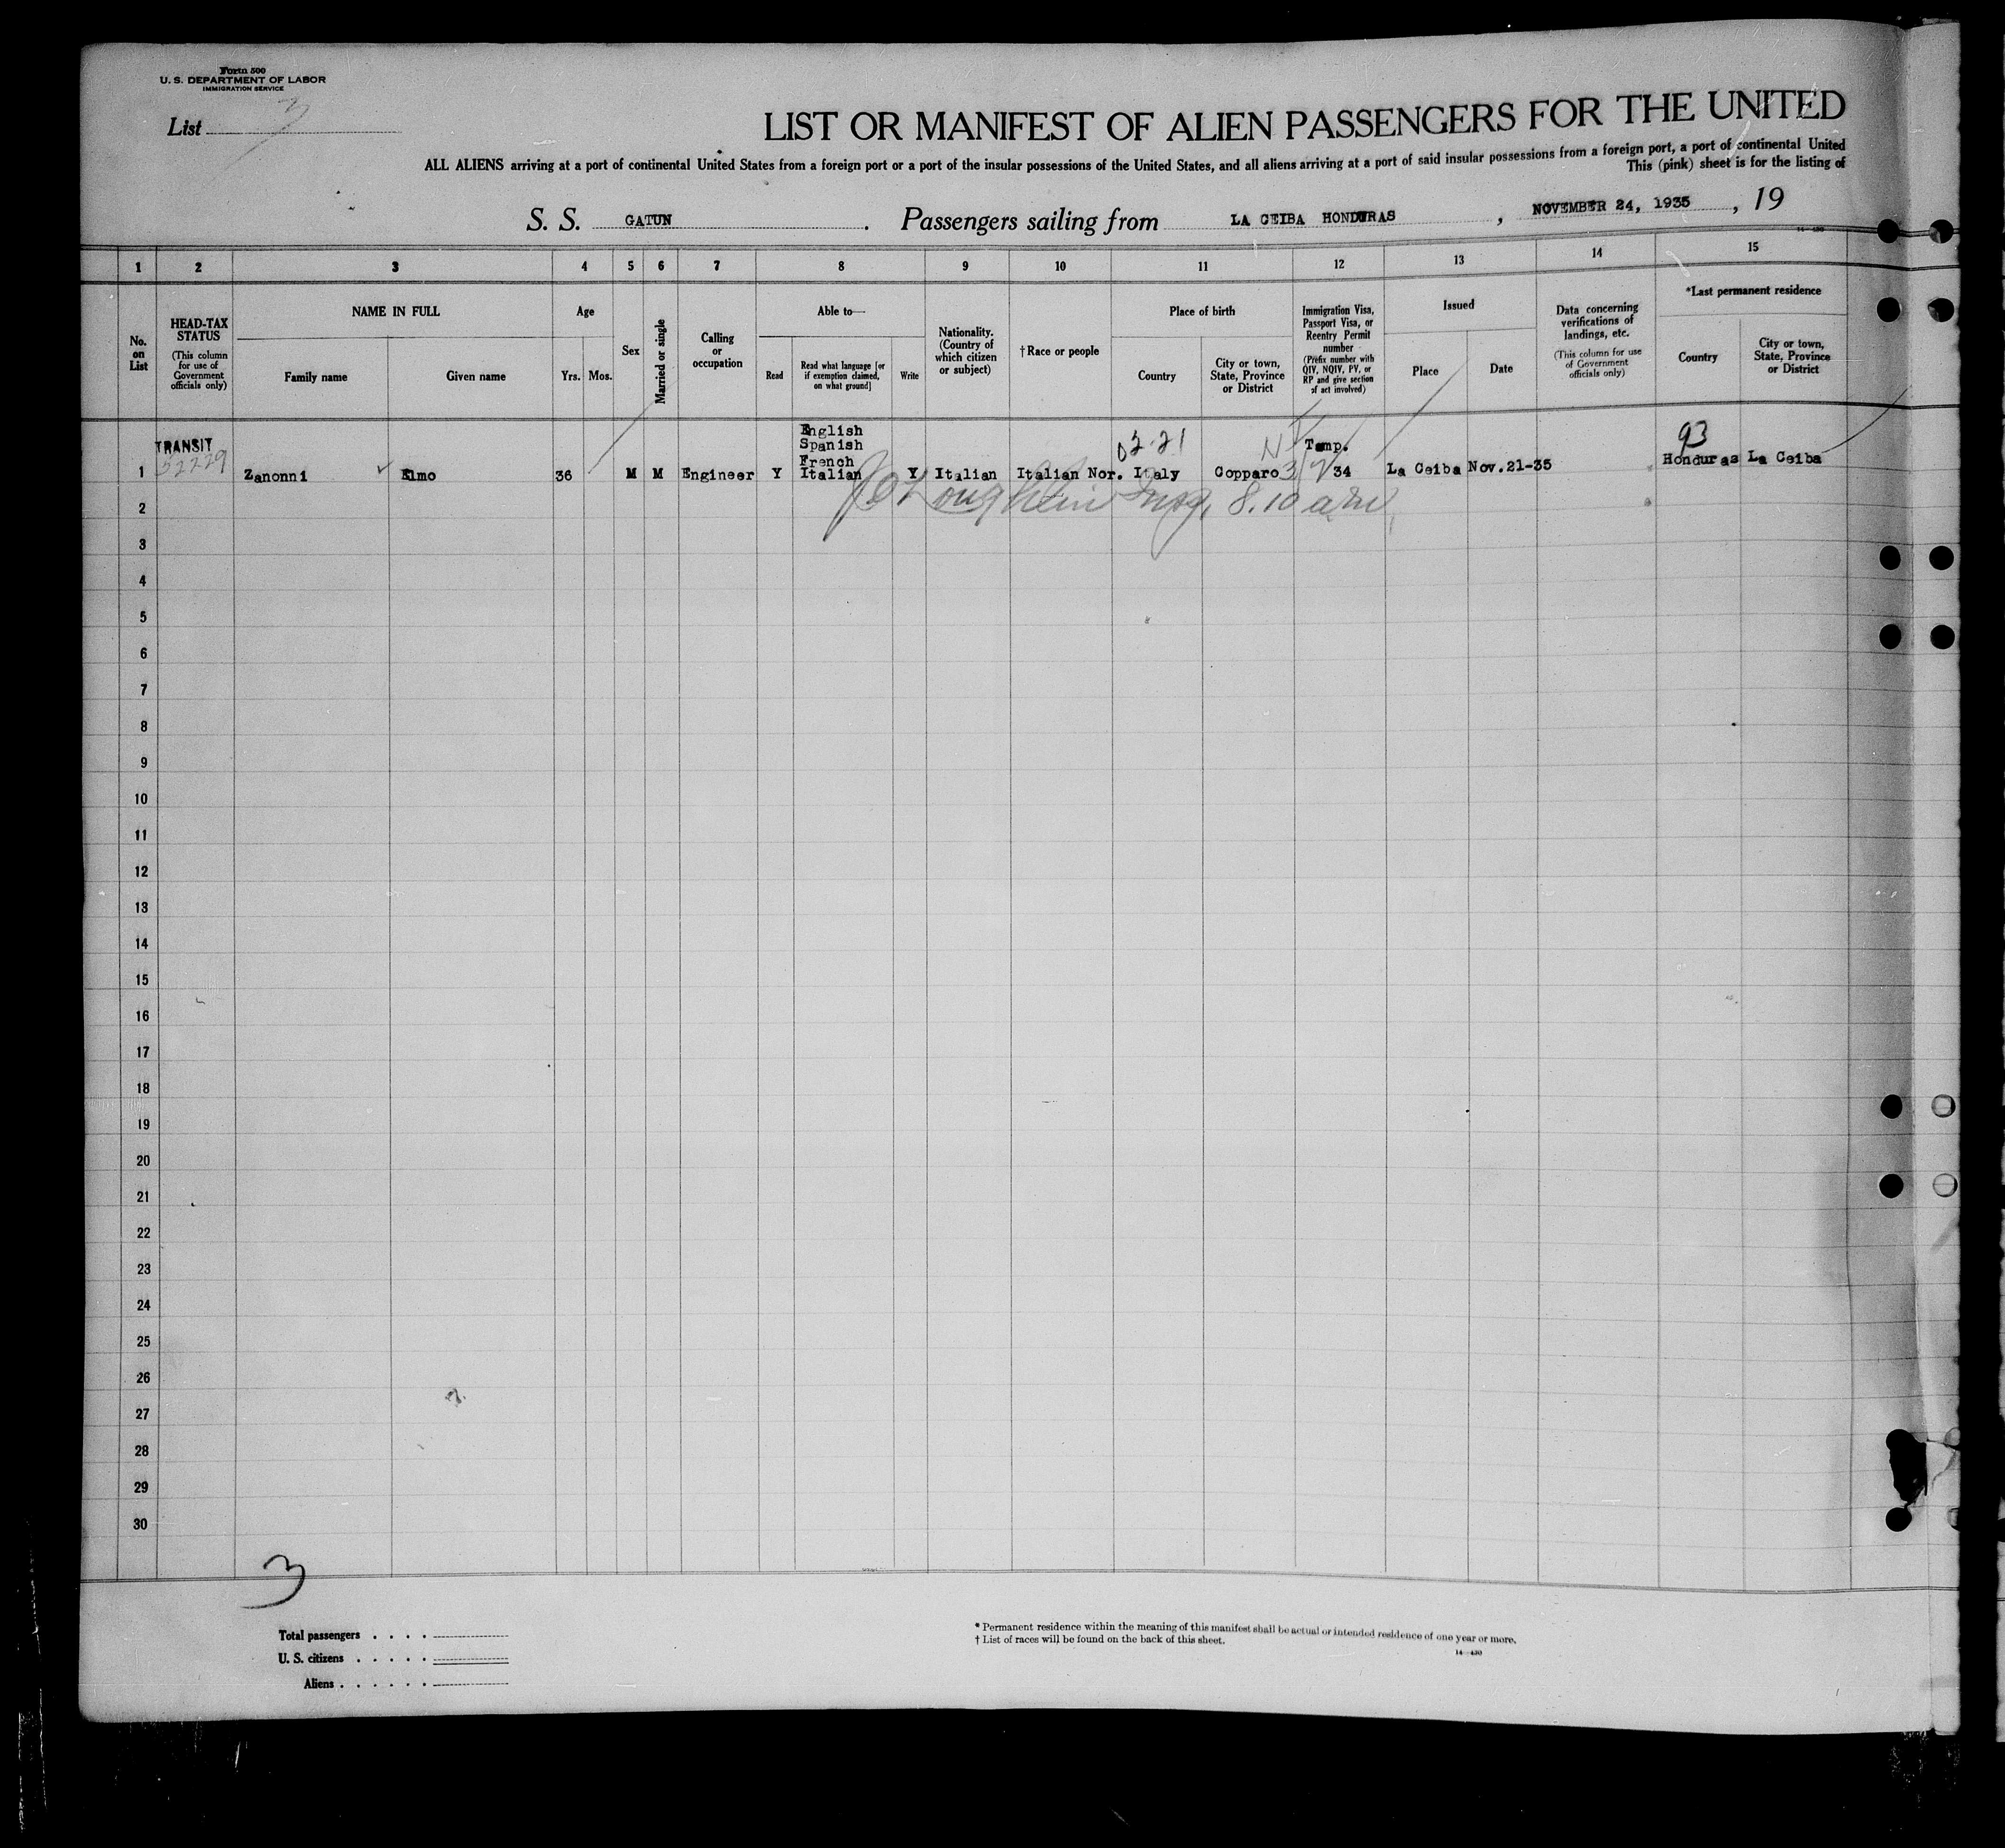 Form 500
U. S. DEPARTMENT OF LABOR
IMMIGRATION SERVICE
List 3
LIST OR MANIFEST OF ALIEN PASSENGERS FOR THE UNITED
ALL ALIENS arriving at a port of continental United States from a foreign port or a port of the insular possessions of the United States, and all aliens arriving at a port of said insular possessions from a foreign port, a port of continental United
This (pink) sheet is for the listing of
S. S. GATUN. Passengers sailing from LA CEIBA HONDURAS, NOVEMBER 24, 1935, 19
1 2 3 4 5 6 7 8 9 10 11 12 13 14 15
No. on List
HEAD-TAX STATUS
(This column for use of Government officials only)
NAME IN FULL
Family name
Given name
Age
Yrs. Mos.
Sex
Married or single
Calling or occupation
Able to—
Read
Read what language [or if exemption claimed, on what ground]
Write
Nationality. (Country of which citizen or subject)
†Race or people
Place of birth
Country
City or town, State, Province or District
Immigration Visa, Passport Visa, or Reentry Permit number
(Prefix number with QIV, NQIV, PV, or RP and give section of act involved)
Issued
Place
Date
Data concerning verifications of landings, etc.
(This column for use of Government officials only)
*Last permanent residence
Country
City or town, State, Province or District
TRANSIT
52229
English
Spanish
French
02-21
Temp.
93
1 Zanonni Elmo 36 M M Engineer Y Italian Y Italian Italian Nor. Italy Copparo 34 La Ceiba Nov.21-35 Honduras La Ceiba
2 8.10 am
3
4
5
6
7
8
9
10
11
12
13
14
15
16
17
18
19
20
21
22
23
24
25
26
27
28
29
30
3
Total passengers . . . .
U. S. citizens . . . . .
Aliens . . . . . .
* Permanent residence within the meaning of this manifest shall be actual or intended residence of one year or more.
† List of races will be found on the back of this sheet.
14—430